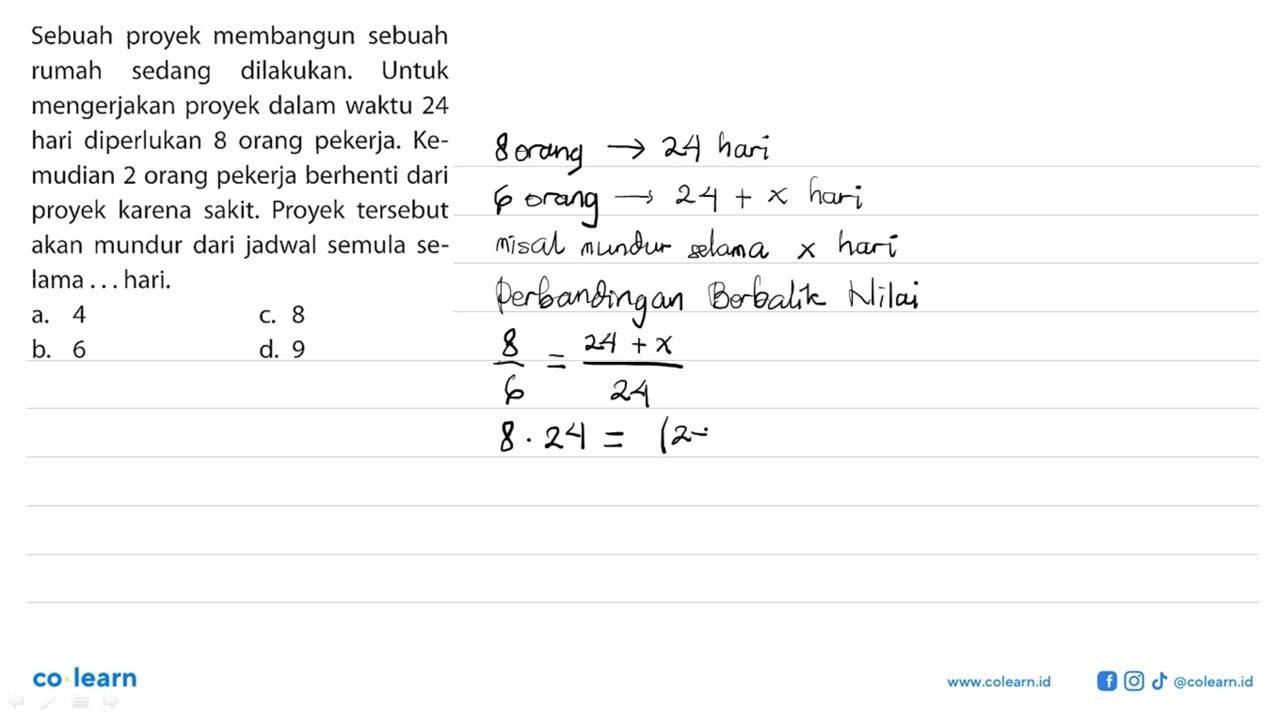 Sebuah proyek membangun sebuah
rumah sedang dilakukan. Untuk
mengerjakan proyek dalam waktu 24
hari diperlukan 8 orang pekerja. Ke-
mudian 2 orang pekerja berhenti dari
proyek karena sakit. Proyek tersebut
akan mundur dari jadwal semula se-
lama . . . hari.
a. 4 c. 8
b. 6 d. 9
8 orang → 24 hari
6 orang → 24 + x hari
misal mundur selama x hari
Perbandingan Berbalik Nilai
8/6 = (24 + x)/24
8 . 24 = (2
co learn
www.colearn.id
@colearn.id